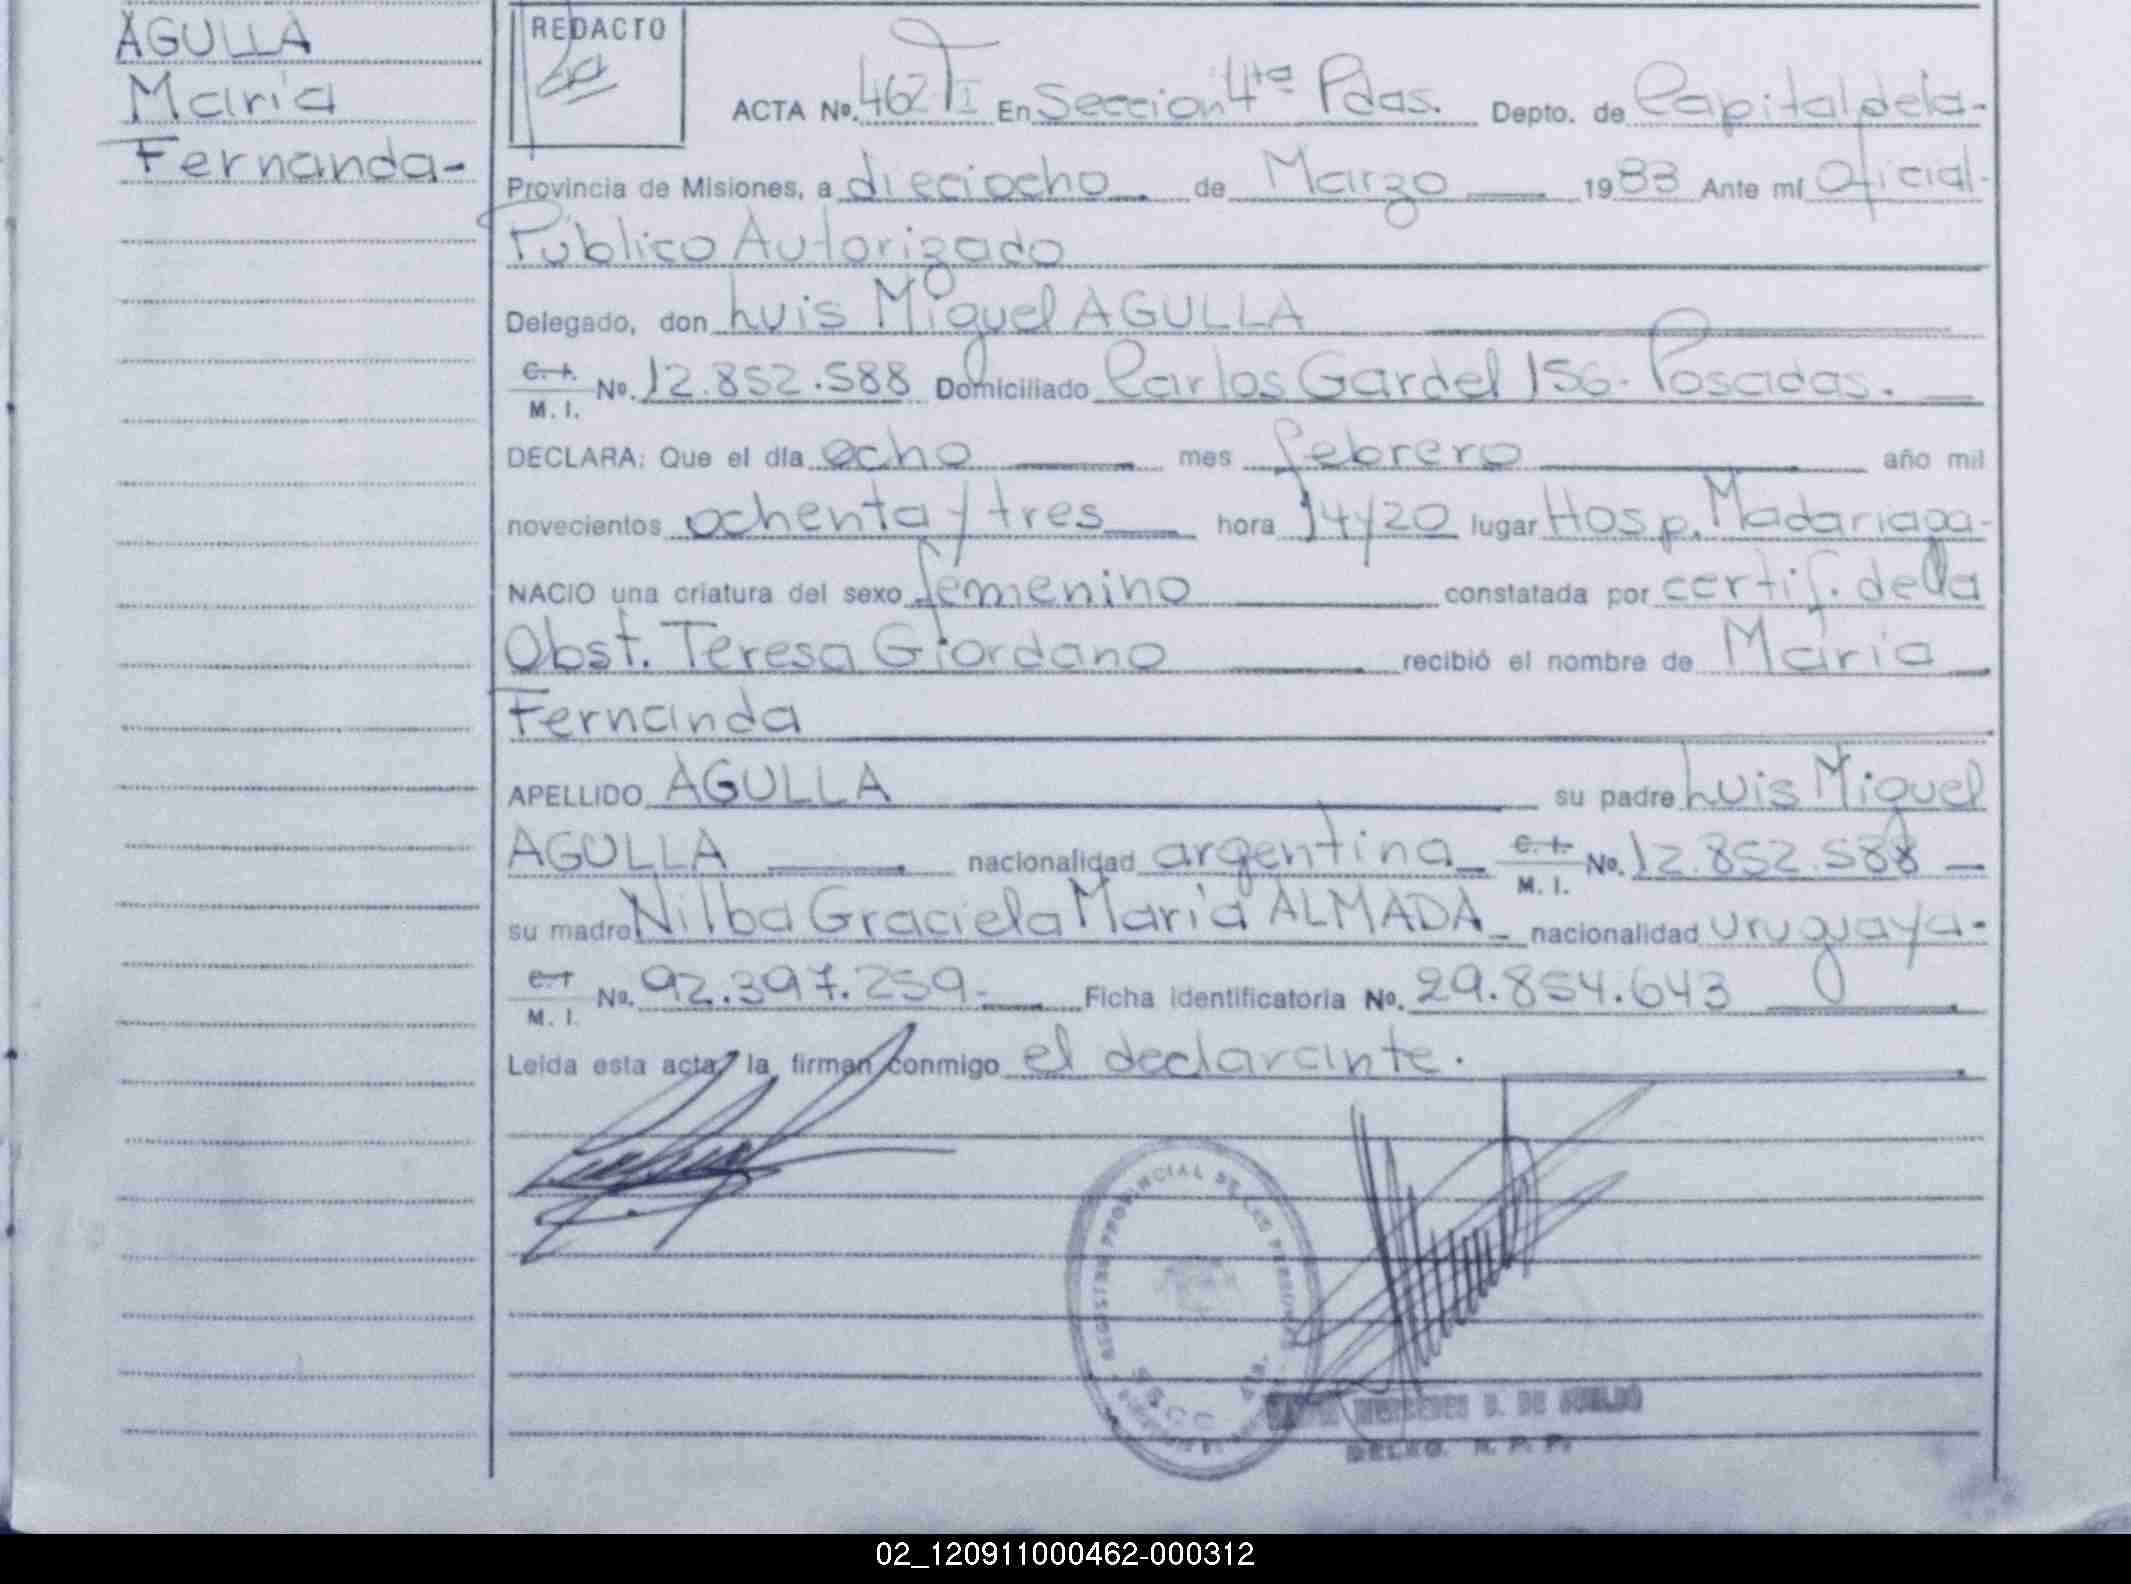 AGULLA
María
Fernanda-
REDACTO
ACTA Nº. 462 TI En Seccion 4ta Pdas. Depto. de Capital de la-
Provincia de Misiones, a dieciocho de Marzo 1983 Ante mí Oficial-
Público Autorizado
Delegado, don Luis Miguel AGULLA
C. I. M. I. Nº. 12.852.588 Domiciliado Carlos Gardel 156- Posadas.
DECLARA: Que el día ocho mes febrero año mil
novecientos ochenta y tres hora 14y20 lugar Hosp. Madariaga-
NACIO una criatura del sexo femenino constatada por certif. de la
Obst. Teresa Giordano recibió el nombre de María
Fernanda
APELLIDO AGULLA su padre Luis Miguel
AGULLA nacionalidad argentina C. I. M. I. Nº. 12.852.588
su madre Nilba Graciela María ALMADA nacionalidad uruguaya-
C. I M. I. Nº. 92.397.259- Ficha identificatoria Nº. 29.854.643
Leída esta acta, la firman conmigo el declarante.
REGISTRO PROVINCIAL DE LAS PERSONAS
DELEG. R. P. P.
02_120911000462-000312